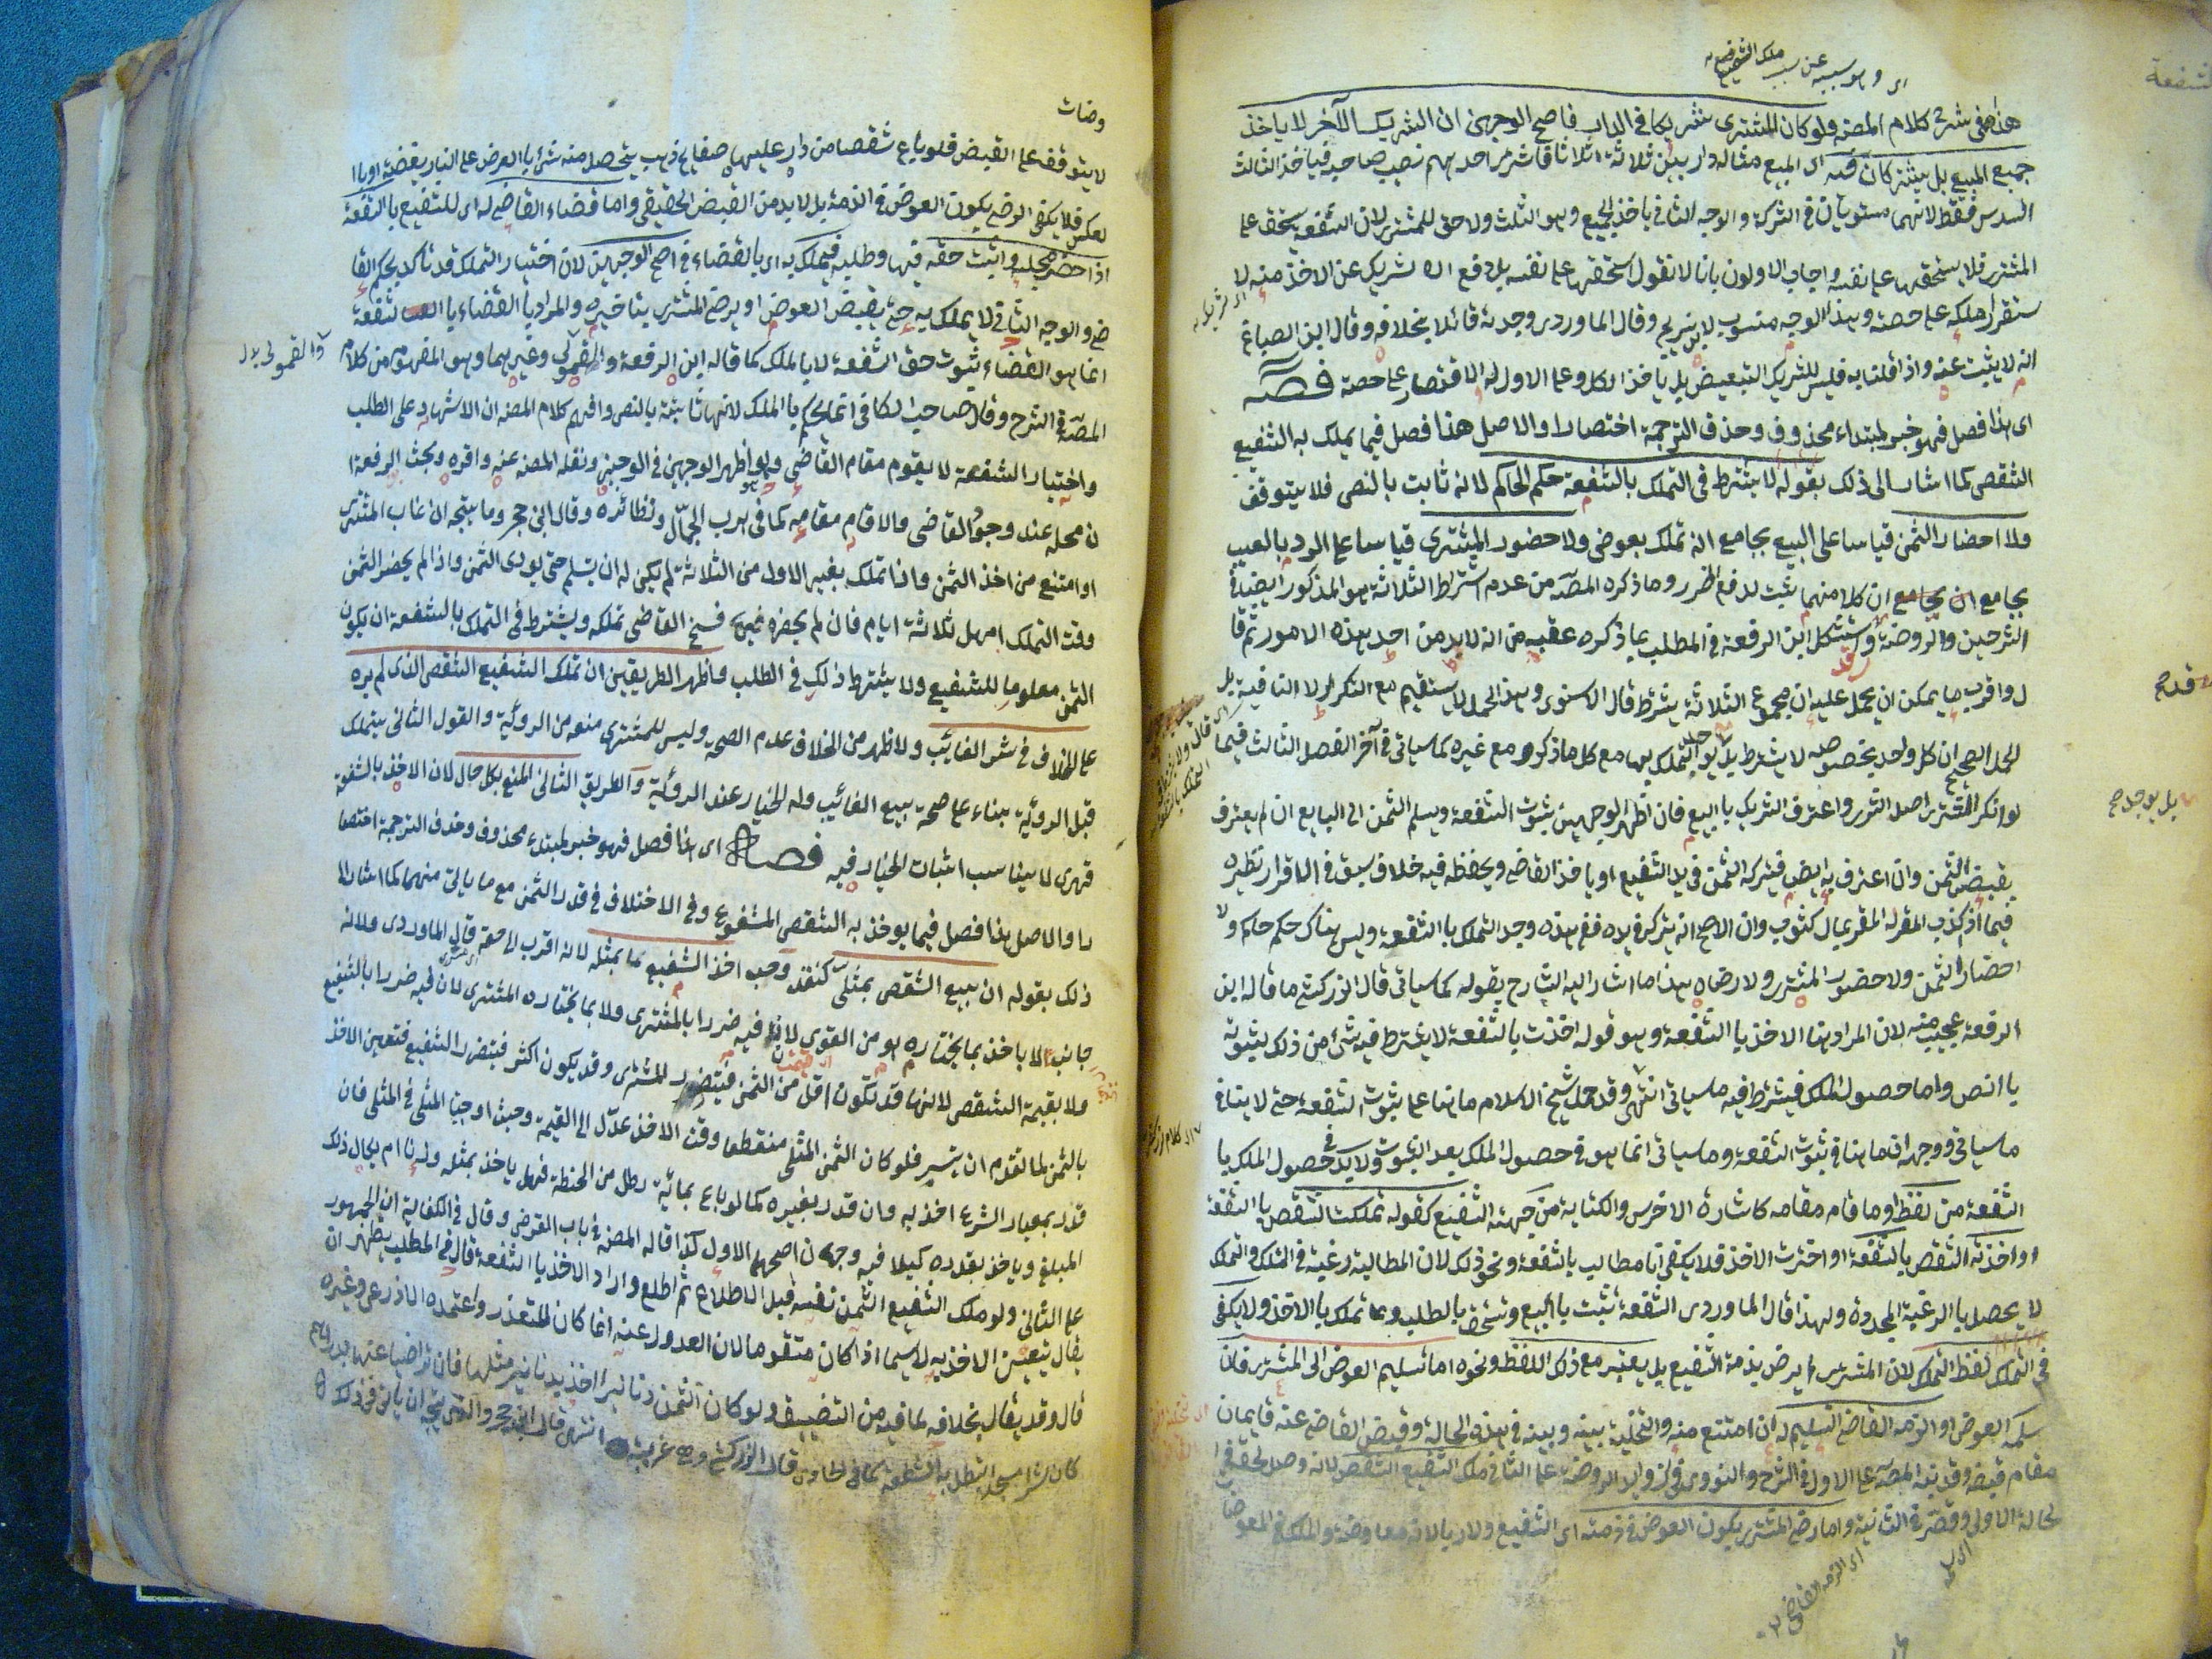 هذا هو في شرح كلام المصنف ولو كان المشترى شريكا في الدار فاصح الوجهين ان الشريك الآخر لا ياخذ
جميع المبيع بل يشتركان فيه اى المبيع مثاله دار بين ثلاثة اثلاثا فاشترى احدهم نصيب صاحبه فياخذ الثالث
السدس فقط لانهما مستويان في الشركة والوجه الثاني ياخذ الجميع وهو الثلث ولا حق للمشترى لان الشفعة يستحق على
المشترى فلا يستحقها على نفسه واجاب الاولون بانا لا نقول استحقها على نفسه بل دفع الشريك عن الاخذ منه لا
ستقرار ملكه على حصته وهذا الوجه منسوب لابن سريج وقال الماوردى وجدته قائلا بخلافه وقال ابن الصباغ
انه لا يثبت عنه واذا قلنا به فليس للشريك التبعيض بل ياخذ الكل وعلى الاول له الاقتصار على حصته فصل
اى هذا فصل فهو خبر لمبتداء محذوف وحذف الترجمة اختصارا والاصل هذا فصل فيما يملك به الشفيع
الشقص كما اشار الى ذلك بقوله لا يشترط في التملك بالشفعة حكم الحاكم لانه ثابت بالنص فلا يتوقف
ولا احضار الثمن قياسا على البيع بجامع انه تملك بعوض ولا حضور المشترى قياسا على الرد بالعيب
بجامع ان كلا منهما يثبت لدفع الضرر وما ذكره المصنف من عدم اشتراط الثلاثة هو المذكور ايضا في
الشرحين والروضة وقد استشكل ابن الرفعة في المطلب بما ذكره عقبه من انه لابد من احد هذه الامور ثم قا
ل واقرب ما يمكن ان يحمل عليه ان مجموع الثلاثة يشترط قال الاسنوى وهذا الحمل لا يستقيم مع التكرار لا النافية بل
الحمل الصحيح ان كل واحد بخصوصه لا يشترط بل يوجد التملك بها مع كل ما ذكر ومع غيره كما سياتى في آخر الفصل الثالث فيما
لو انكر المشترى اصل الشرى واعترف الشريك بالبيع فان اظهر الوجهين ثبوت الشفعة ويسلم الثمن الى البايع ان لم يعترف
بقبض الثمن وان اعترف به ايضا فيترك الثمن في يد الشفيع او ياخذ القاضى ويحفظه فيه خلاف سبق في الاقرار نظيره
فيما اذا كذب المقر له المقر بمال كثوب وان الاصح انه يترك في يده ففي هذه وجد التملك بالشفعة وليس هناك حكم حاكم ولا
احضار الثمن ولا حضور المشترى ولا رضاه هذا ما اشار اليه الشارح بقوله كما سياتى قال الزركشى ما قاله ابن
الرفعة عجيب منه لان المراد هنا الاخذ بالشفعة وهو قوله اخذت بالشفعة لا يشترط فيه شئ من ذلك بثبوته
بالنص واما حصول الملك فيشترط فيه ما سياتى انتهى وقد حمل شيخ الاسلام ما هنا على ثبوت الشفعة حتى لا ينافي
ما سياتى ووجهه ان ما هنا في ثبوت الشفعة وما سياتى انما هو في حصول الملك بعد الثبوت ولابد في حصول الملك با
الشفعة من لفظ وما قام مقامه كاشارة الاخرس والكتابة من جهته الشفيع كقوله تملكت الشقص بالشفعة
او اخذته الشقص بالشفعة او اخترت الاخذ فلا يكفي انا مطالب بالشفعة ونحو ذلك لان المطالبة رغبة في الملك والتملك
لا يحصل بالرغبة المجردة ولهذا قال الماوردى الشفعة تثبت بالبيع وتستحق بالطلب وتملك بالاخذ ولا يكفي
في التملك لفظ التملك لان المشترى لم يرض بذمة الشفيع بل يعتبر مع ذلك اللفظ ونحوه اما تسليم العوض الى المشترى فان
سلمه العوض او الزمه القاضى التسليم له ان امتنع منه والتخلية بينه وبينه في هذه الحالة وقبض القاضى عنه قايمان
مقام قبضه وقد نبه المصنف على الاول في الشرح والنووى في زوايد الروضة على الثاني ملك الشفيع الشقص لانه وصل لحقه في ا
لحالة الاولى وقصره في الثانية واما رضى المشترى بكون العوض في ذمته اى الشفيع ولا ربا لانه معاوضة والملك في المعوضات
وضات
لا يتوقف على القبض فلو باع شقصا من دار عليها صفايح ذهب يتحصل منه شئ بالعرض على النار بفضة او با
لعكس فلا يكفي الرضى بكون العوض في الذمة بل لابد من القبض الحقيقي واما قضاء القاضى له اى للشفيع بالشفعة
اذا حضر مجلسه واثبت حقه فيها وطلبه فيملك به اى بالقضاء في اصح الوجهين لان اختيار التملك قد تاكد بحكم القا
ضى والوجه الثاني لا يملك به حتى يقبض العوض او يرضى المشترى بتاخيره والمراد بالقضاء بالشفعة
انما هو القضاء بثبوت حق الشفعة لا بالملك كما قاله ابن الرفعة والقمولى وغيرهما وهو المفهوم من كلام
المصنف في الشرح وقال صاحب الكافي انما يحكم بالملك لانها ثابتة بالنص وافهم كلام المصنف ان الاشهاد على الطلب
واختيار الشفعة لا يقوم مقام القاضى وهو اظهر الوجهين في الوجيز ونقله المصنف عنه واقره وبحث ابن الرفعة ا
ن محله عند وجود القاضى والا قام مقامه كما في هرب الجمال ونظائره وقال ابن حجر وما يتجه ان غاب المشترى
او امتنع من اخذ الثمن واذا تملك بغير الاول من الثلاثة لم يكن له ان يتسلم حتى يودى الثمن واذا لم يحضر الثمن
وقت التملك امهل ثلاثة ايام فان لم يحضره فيها فسخ القاضى تملكه ويشترط في التملك بالشفعة ان يكون
الثمن معلوما للشفيع ولا يشترط ذلك في الطلب واظهر الطريقين ان تملك الشفيع الشقص الذى لم يره
على الخلاف في شراء الغائب والاظهر من الخلاف عدم الصحة وليس للمشترى منعه من الروئية والقول الثاني يتملك
قبل الروئية بناء على صحة بيع الغائب وله الخيار عند الروئية والطريق الثاني المنع بكل حال لان الاخذ بالشفعة
قهرى لا يناسب اثبات الخيار فيه فصل اى هذا فصل فهو خبر لمبتداء محذوف وحذف الترجمة اختصا
را والاصل هذا فصل فيما يوخذ به الشقص المشفوع وفي الاختلاف في قدر الثمن مع ما ياتى منهما كما اشار الا
ذلك بقوله ان بيع الشقص بمثلى كنقد وحب اخذ الشفيع بما بمثله لانه اقرب الى حقه قال الماوردى ولانه
جانب الا ياخذ بما يختاره هو من القوى لان فيه ضررا بالمشترى ولا بما يختاره المشترى لان فيه ضررا بالشفيع
ولا بقيمة الشقص لانها قد تكون اقل من الثمن فيتضرر المشترى وقد يكون اكثر فيتضرر الشفيع فتعين الاخذ
بالثمن لما تقدم ان يتيسر فلو كان الثمن المثلى منقطعا وقت الاخذ عدل الى القيمة وحيث اوجبنا المثلى في المثلى فان
قدر بمعيار الشرع اخذ به وان قدر بغيره كما لو باع بمائة رطل من الحنطة فهل ياخذ بمثله وزنا ام يكال ذلك
المبلغ وياخذ بقدره كيلا فيه وجهان اصحهما الاول كذا قاله المصنف في باب القرض وقال في الكفاية ان الجمهور
على الثاني ولو ملك الشفيع الثمن نفسه قبل الاطلاع ثم اطلع واراد الاخذ بالشفعة قال في المطلب يظهر ان
يقال يتعين الاخذ به لاسيما اذا كان متقوما لان العدول عنه انما كان للتعذر واعتمده الاذرعى وغيره
قال وقد يقال بخلافه لما فيه من التضييق ولو كان الثمن دنانير اخذ بدنانير مثلها فان تراضيا عنها بدراهم
كان شراء مستجدا تبطل به الشفعة كما في الحاوى قال الزركشى وهى غريبة انتهى قال ابن حجر والذى يتجه ان ياتى في ذلك
قد صح
بل يوجد صح